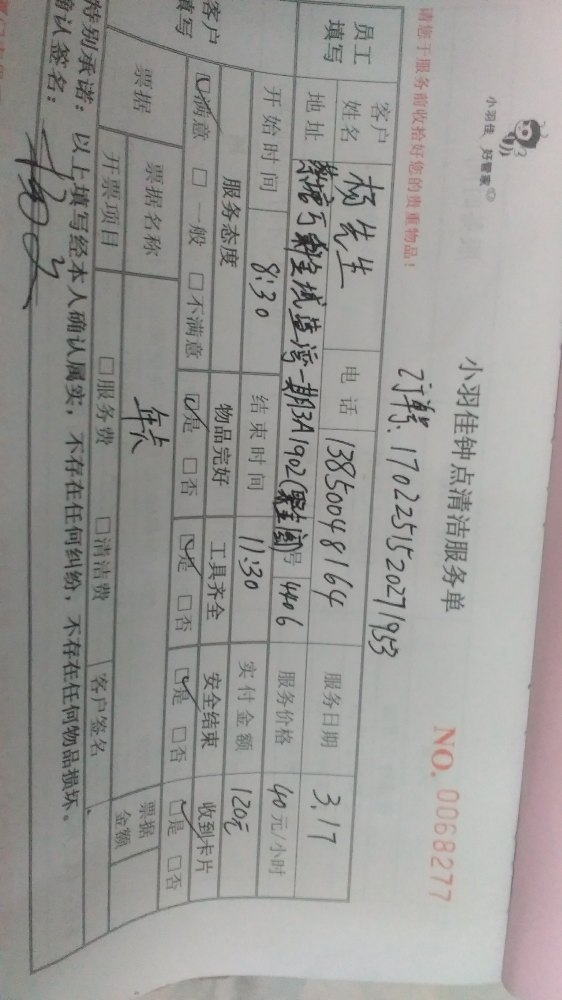 小羽佳 好管家
小羽佳钟点清洁服务单
NO. 0068277
订单号: 170225152027 1953
请您于服务前收拾好您的贵重物品!
员工填写
客户姓名 杨先生 电话 13850048164 服务日期 3.17
地址 蓝湾一期3A1902 号 4406 服务价格 40元/小时
开始时间 8:30 结束时间 11:30 实付金额 120元
客户填写
服务态度 物品完好 工具齐全 安全结束 收到卡片
☑满意 □一般 □不满意 ☑是 □否 ☑是 □否 ☑是 □否 ☑是 □否
票据 票据名称 年卡 票据金额
开票项目 □服务费 □清洁费 客户签名
特别承诺: 以上填写经本人确认属实, 不存在任何纠纷, 不存在任何物品损坏。
确认签名: